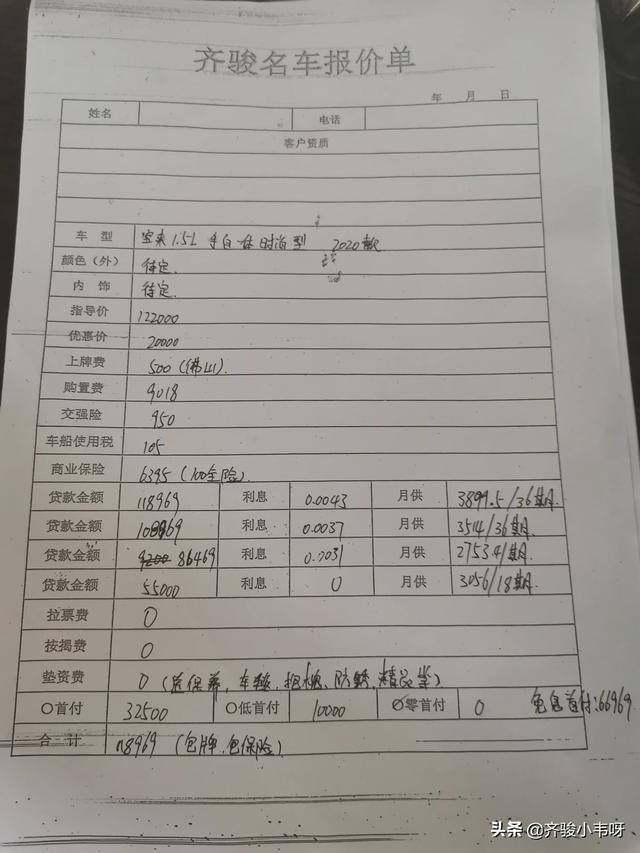 齐骏名车报价单
年 月 日
姓名 电话
客户资质
车 型 宝来 1.5L 手自一体时尚型 2020款
颜色(外) 待定.
内 饰 待定.
指导价 122000
优惠价 20000
上牌费 500 (佛山).
购置费 9018
交强险 950
车船使用税 105
商业保险 6395 (100全险).
贷款金额 118969 利息 0.0043 月供 3899.5/36期.
贷款金额 108969 利息 0.0037 月供 3514/36期.
贷款金额 86469 利息 0.0031 月供 2753.4/期.
贷款金额 55000 利息 0 月供 3056/18期.
拉票费 0
按揭费 0
垫资费 0 (送保养, 车, 防锈, 精品等)
○首付 32500 ○低首付 10000 ○零首付 0 免息首付:66969
合 计 118969 (包牌.包保险)
头条 @齐骏小韦呀